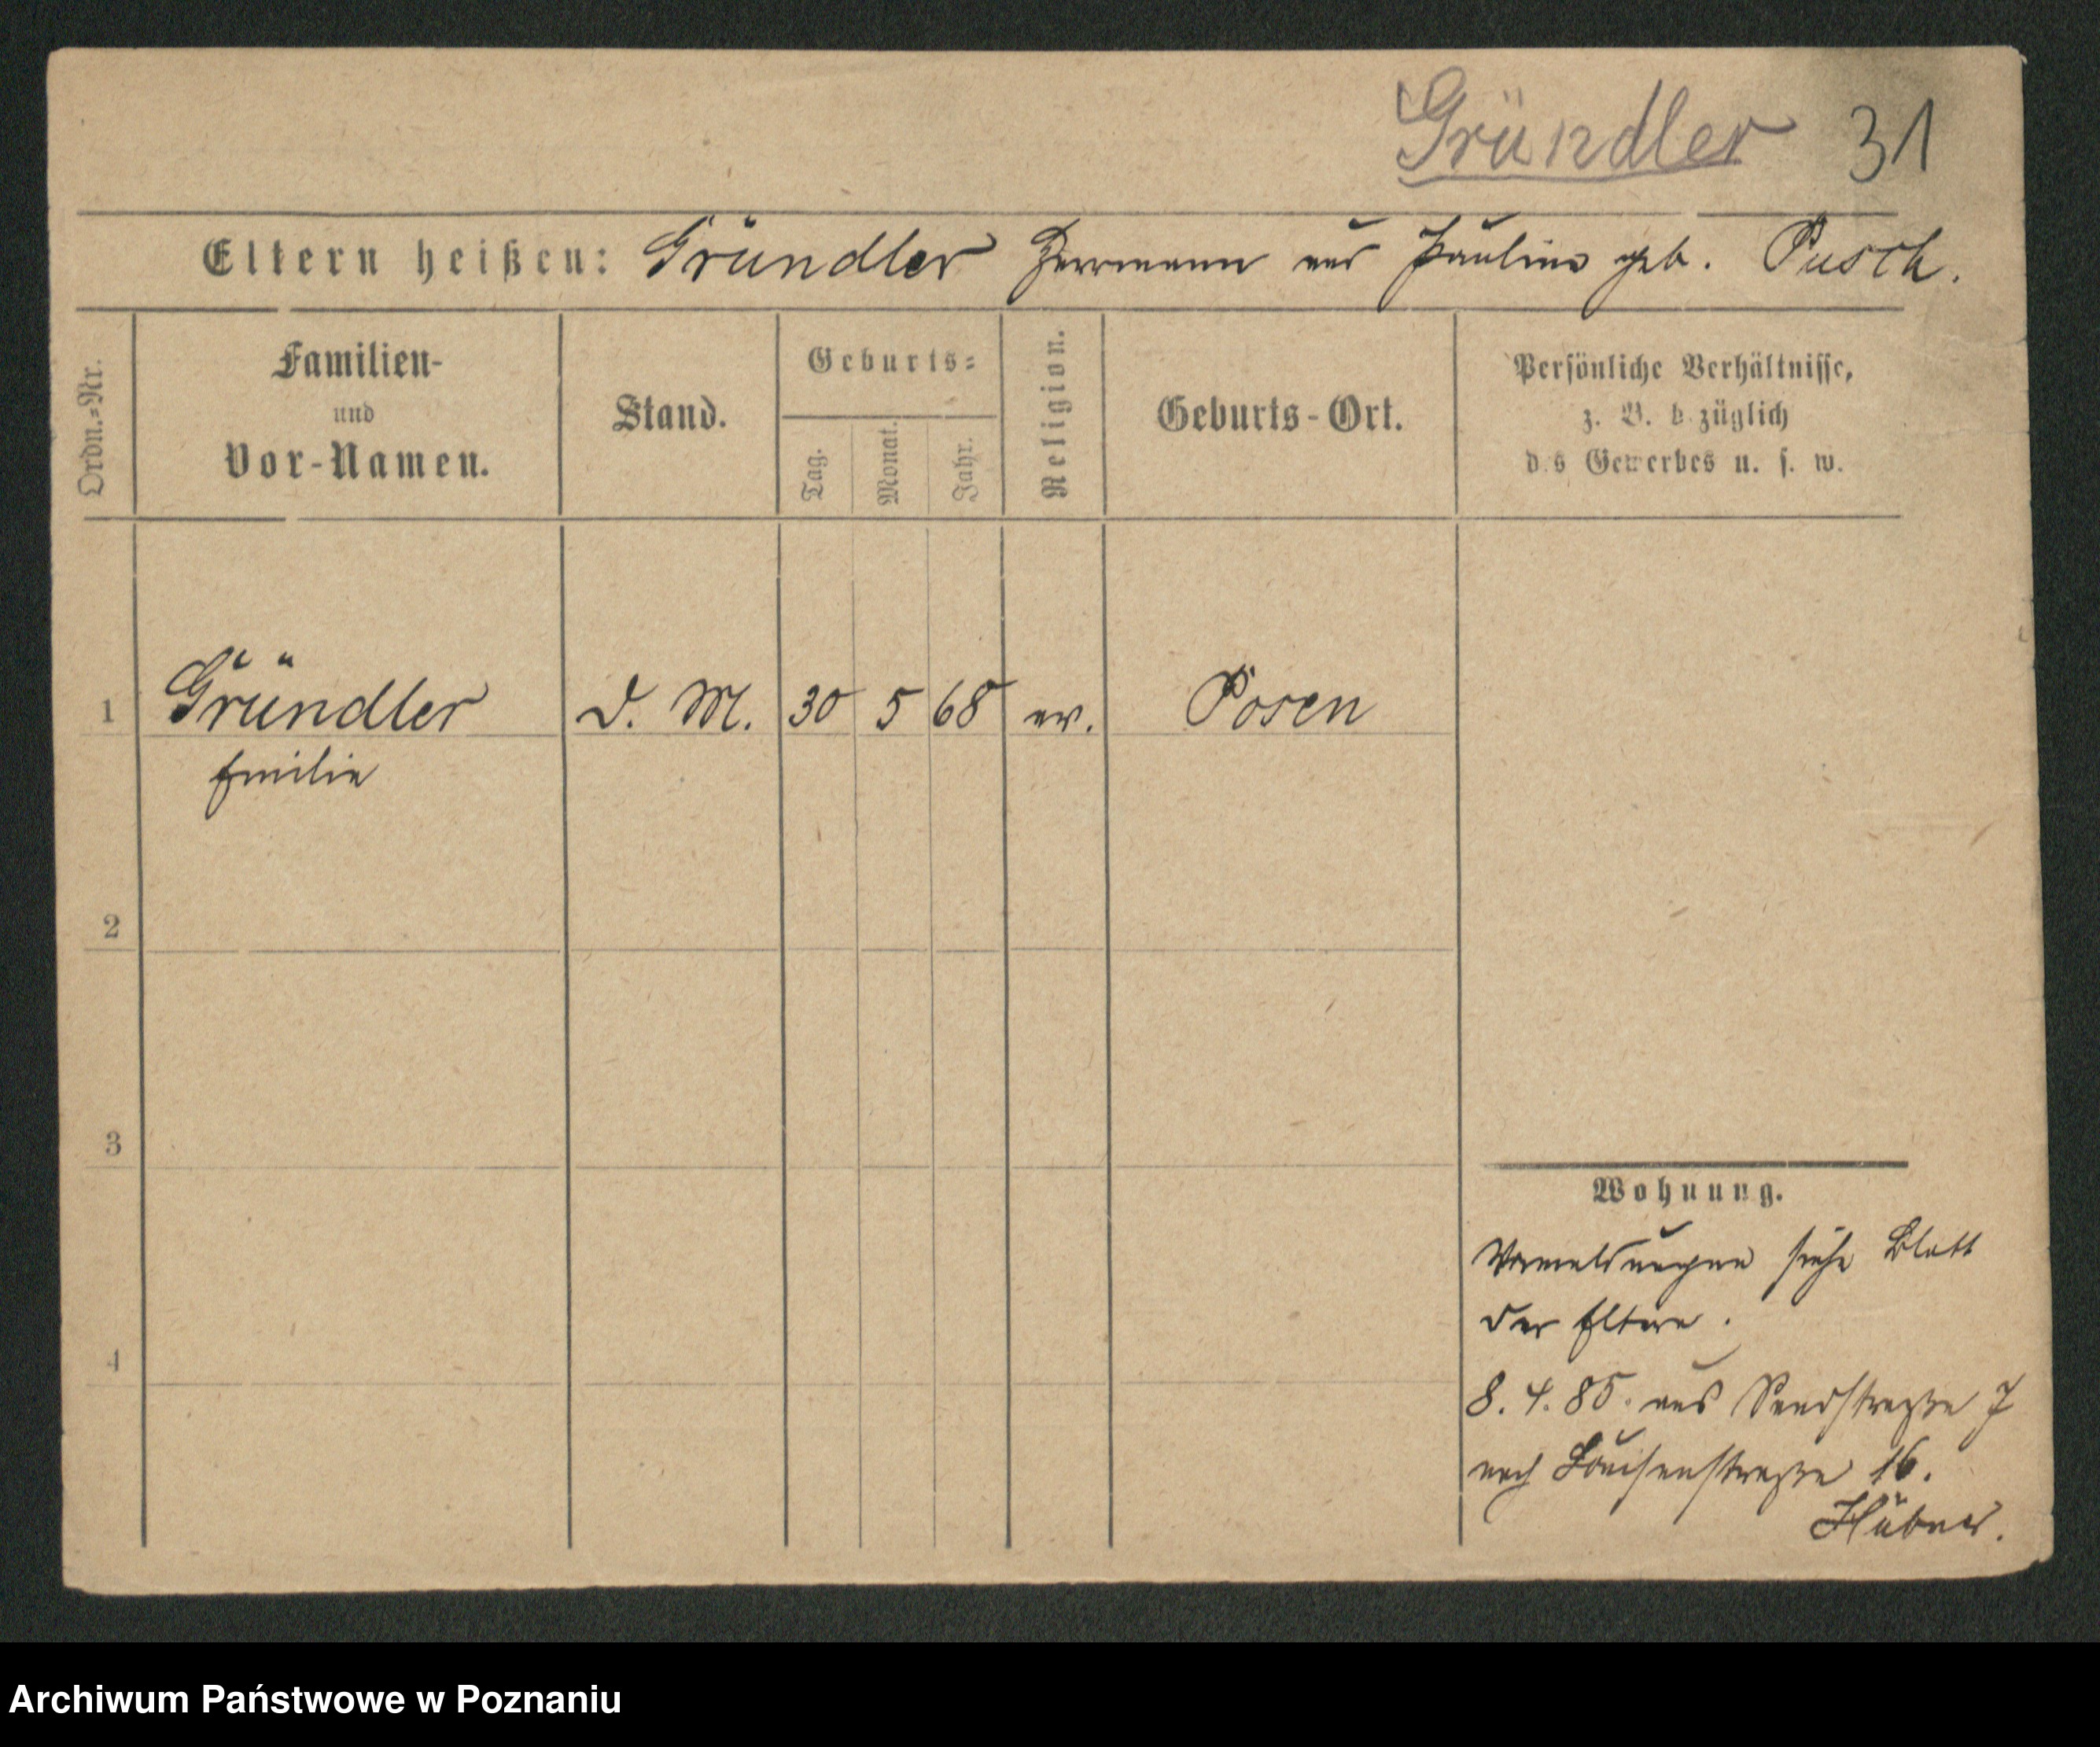 Gründler 31
Eltern heißen: Gründler Herrmann und Pauline geb. Pusch.
Ordn.=Nr.
Familien-
und
Vor-Namen.
Stand.
Geburts=
Tag.
Monat.
Jahr.
Religion.
Geburts-Ort.
Persönliche Verhältnisse,
z. B. b züglich
d s Gewerbes u. s. w.
1 Gründler D. M. 30 5 68 ev. Posen
Emilie
2
3
4
Wohnung.
Vormeldungen siehe Blatt
der Eltern.
8. 4. 85. aus Sandstraße 7
nach Louisenstraße 16.
Hübner.
Archiwum Państwowe w Poznaniu